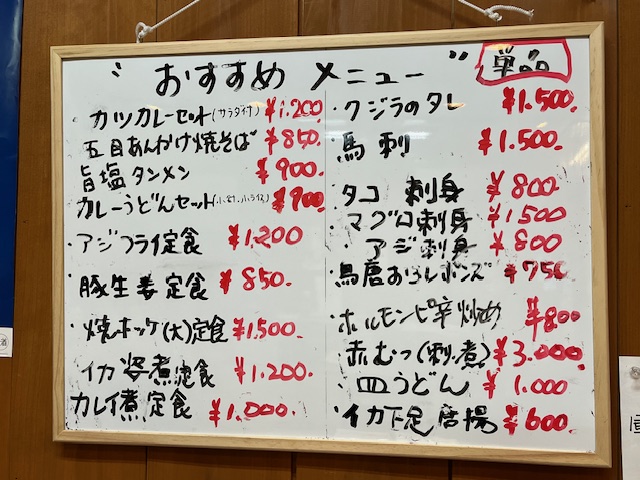 〝おすすめ メニュー〟
カツカレーセット(サラダ付) ¥1.200
五目あんかけ焼そば ¥850.
旨塩タンメン ¥900.
カレーうどんセット ¥900.
・アジフライ定食 ¥1.200
・豚生姜定食 ¥850.
・焼ホッケ(大)定食 ¥1.500
・イカ姿煮定食 ¥1.200.
カレイ煮定食 ¥1.000.
単品
・クジラのタレ ¥1.500.
・馬刺 ¥1.500.
・タコ刺身 ¥800
・マグロ刺身 ¥1500
・アジ刺身 ¥800
・鳥唐おろしポンズ ¥750
・ホルモンピ辛炒め ¥800
赤むつ(刺.煮) ¥3.000.
・皿うどん ¥1.000
・イカ下足唐揚 ¥600.